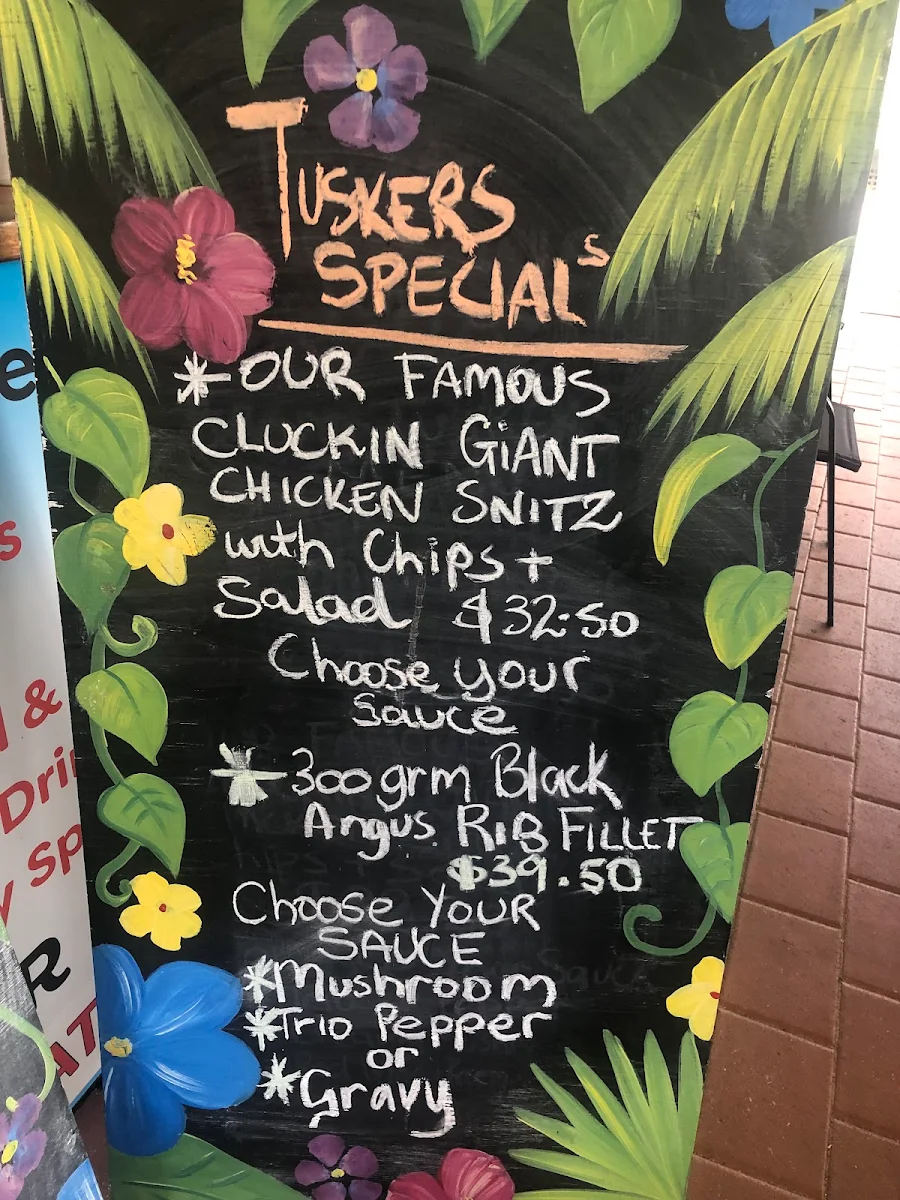 TUSKERS
SPECIALS
*OUR FAMOUS
CLUCKIN GiANT
CHICKEN SNITZ
with Chips +
Salad $32.50
Choose your
Sauce
*300grm Black
Angus RIB FILLET
$39.50
Choose YOUR
SAUCE
*Mushroom
*Trio Pepper
or
*Gravy
e
s
&
Dri
y SP
R
AT